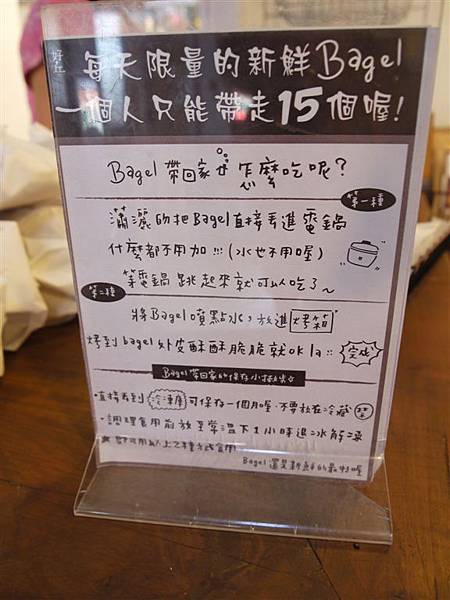 好丘
每天限量的新鮮Bagel
一個人只能帶走15個喔!
Bagel 帶回家 怎麼吃呢?
第一種
瀟灑的把Bagel直接丟進電鍋
什麼都不用加!!! (水也不用喔)
等電鍋跳起來就可以吃了~
第二種
將Bagel噴點水,放進烤箱
烤到bagel外皮酥酥脆脆就ok la::
完成
Bagel帶回家的保存小撇步
·直接丟到冷凍庫可保存一個月喔·不要放在冷藏
·調理食用前放至常溫下1小時進冰解凍
即可用以上2種方式食用
Bagel還是新鮮的最好喔